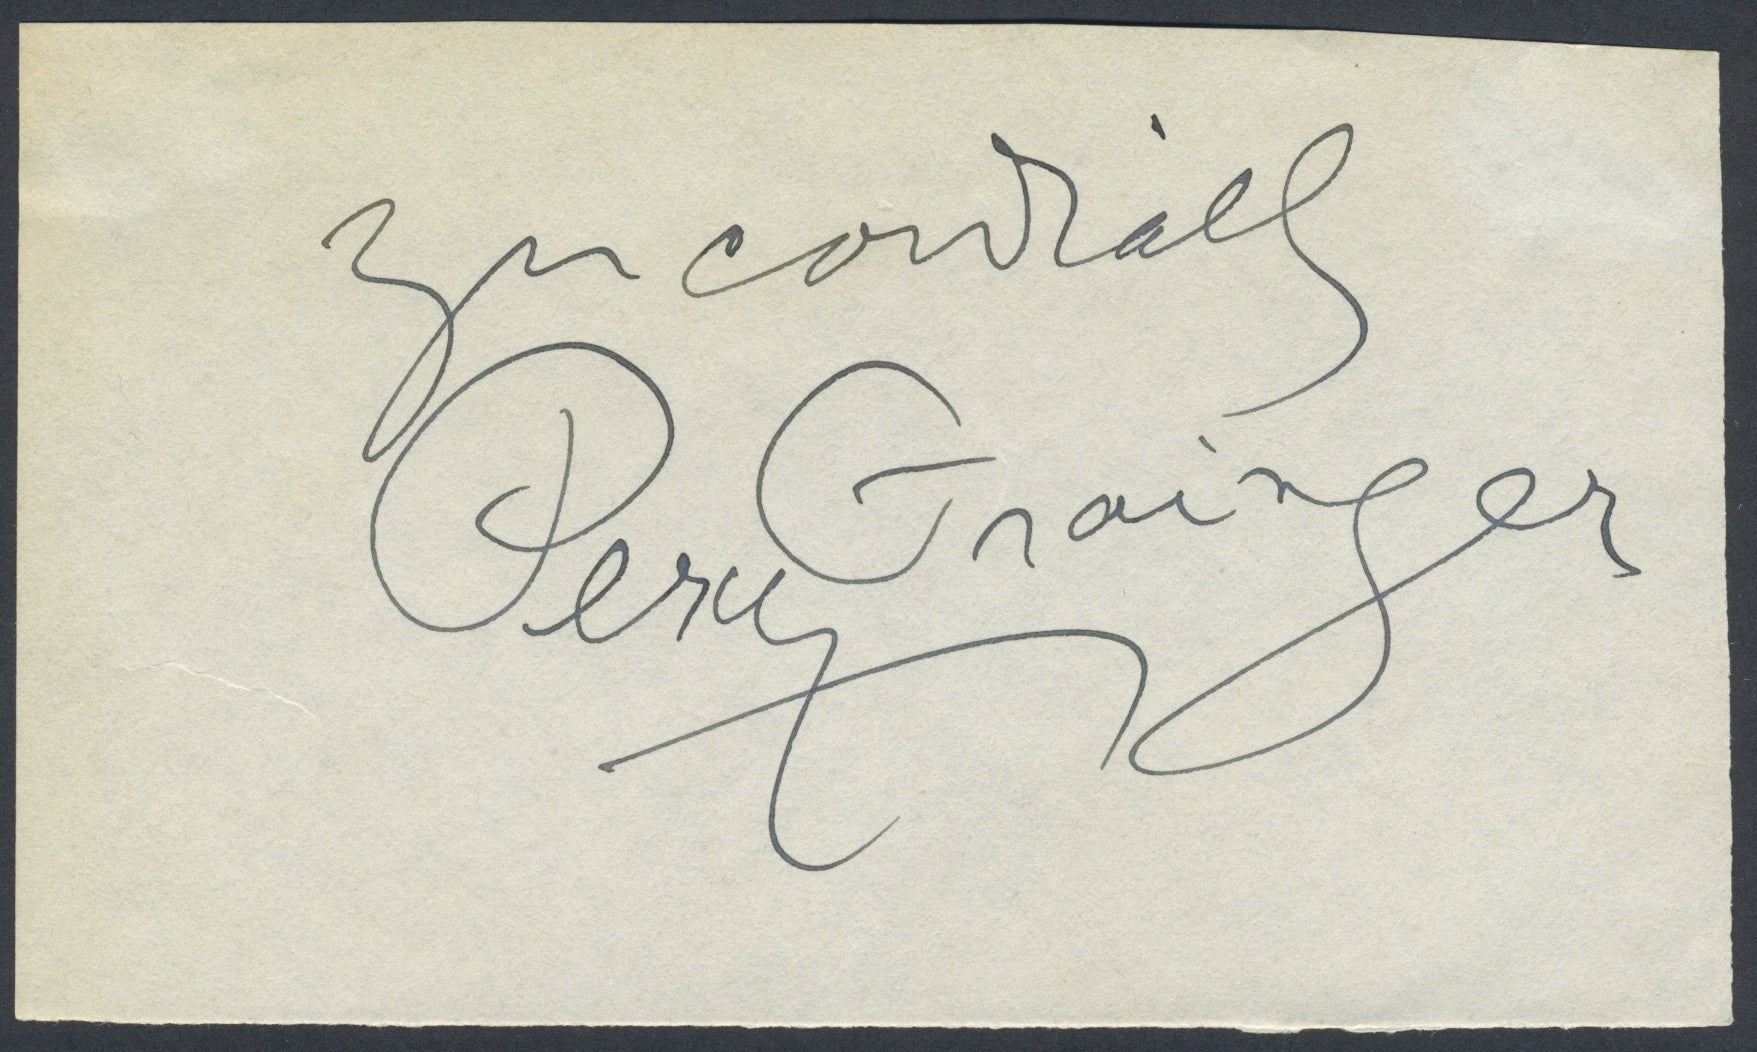 yrs cordially
Percy Grainger